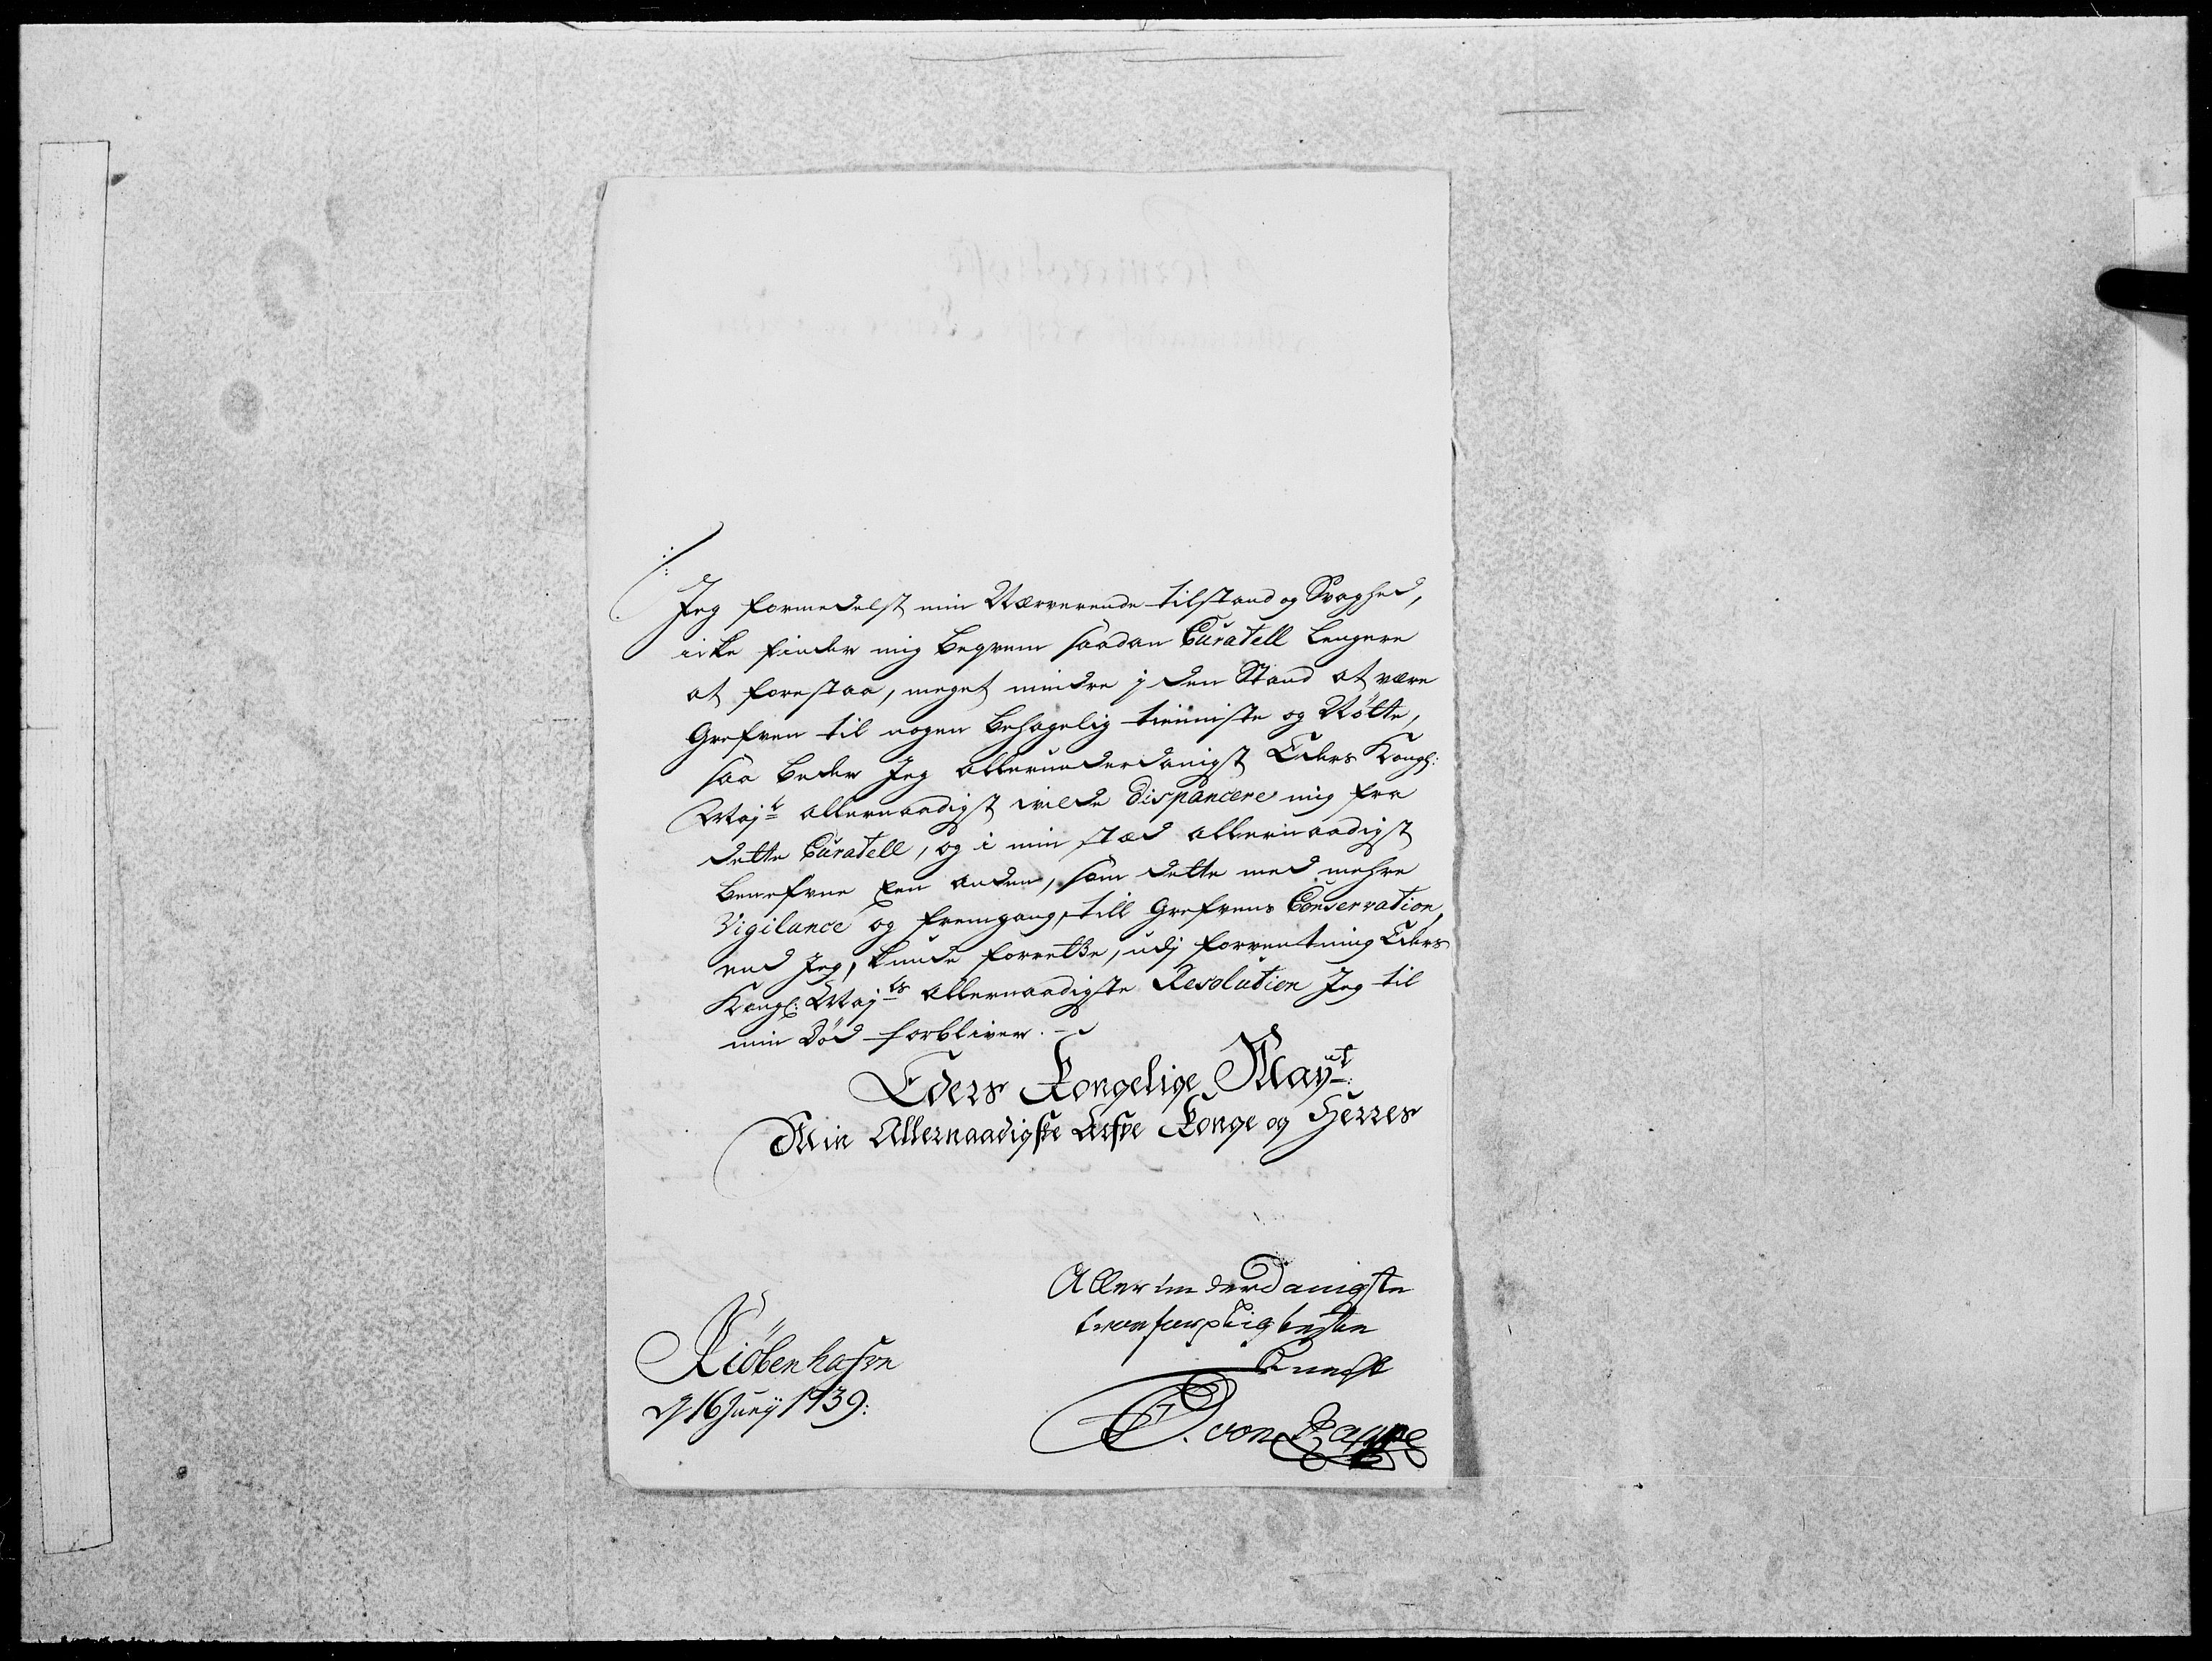 Jeg formedelst min Nærverende tilstand og Svaghed,
icke finder mig beqvem saadan Curatell lengere
at forestaa, meget mindre j den Stand at være
Grefven til nogen behagelig tienniste og Nötte,
saa beder Jeg allerunderdanigst Eders Kongl:
Majt allernaadigst vilde dispancere mig fra
dette Curatell, og i min stæd allernaadigst
benefvne een anden, som dette med mehre
Vigilance og fremgang, till Grefvens Conservation,
end Jeg, kunde forrette, udj forventning Eders
Kongl: Majts allernaadigste Resolution Jeg til
min Död forbliver.
Eders Kongelige Mayt:
Min Allernaadigste Arfve Konge og Herres
Allerunderdanigste
troepligtigste
Knecht
Kiöbenhafvn
d 16 Junij 1739:
von Rappe